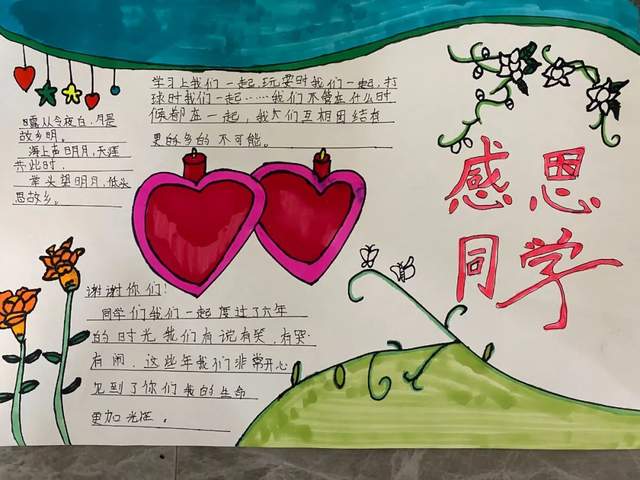 感恩
同学
学习上我们一起，玩耍时我们一起，打
球时我们一起……我们不管在什么时
候都在一起，我们互相团结有
更的多的不可能。
露从今夜白，月是
故乡明。
海上生明月，天涯
共此时．
举头望明月，低头
思故乡。
谢谢你们！
同学们我们一起度过了六年
的时光我们有说有笑，有哭．
有闹，这些年我们非常开心
见到了你们我的生命
更加光．